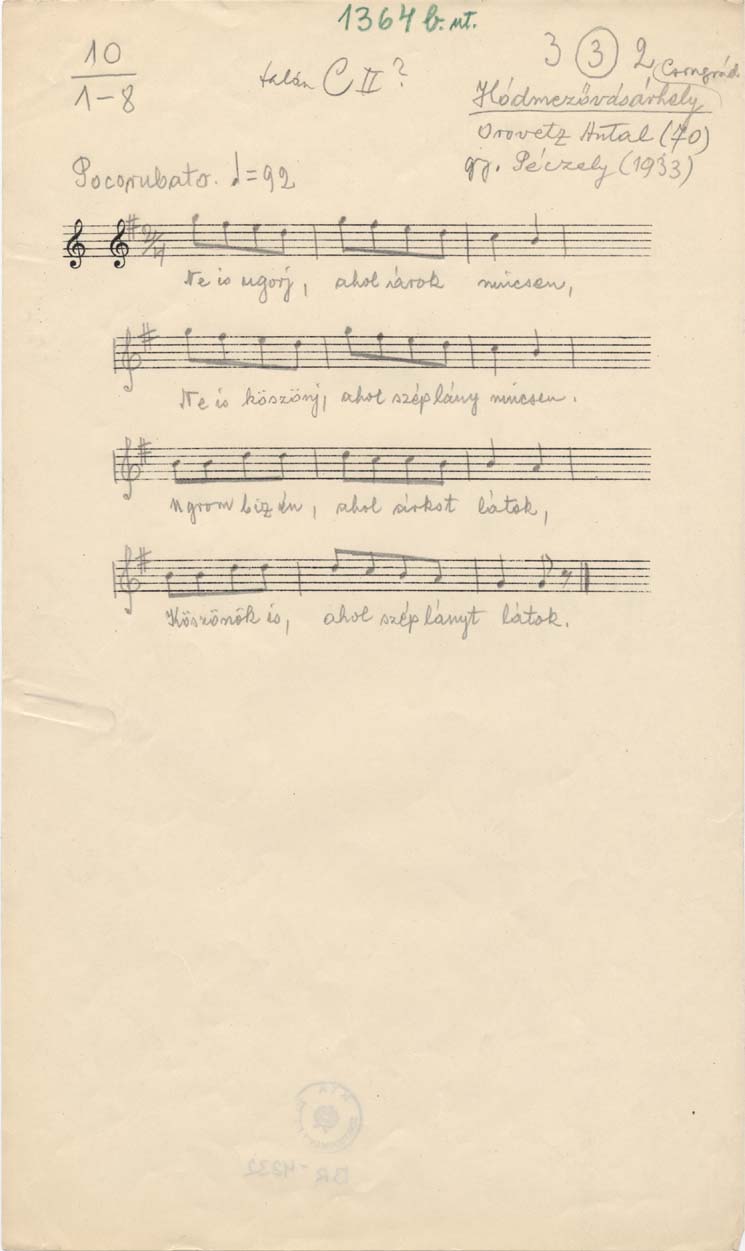 1364 b. nt.
10
1-8
talán C II ?
3 3 2
Csongrád.
Hódmezővásárhely
Orovetz Antal (70)
gy. Péczely (1933)
Poco rubato. ♩=92
2/4
Ne is ugorj, ahol árok nincsen,
Ne is köszönj, ahol szép lány nincsen.
Ugrom biz én, ahol árkot látok,
Köszönök is, ahol szép lányt látok.
BR-4232